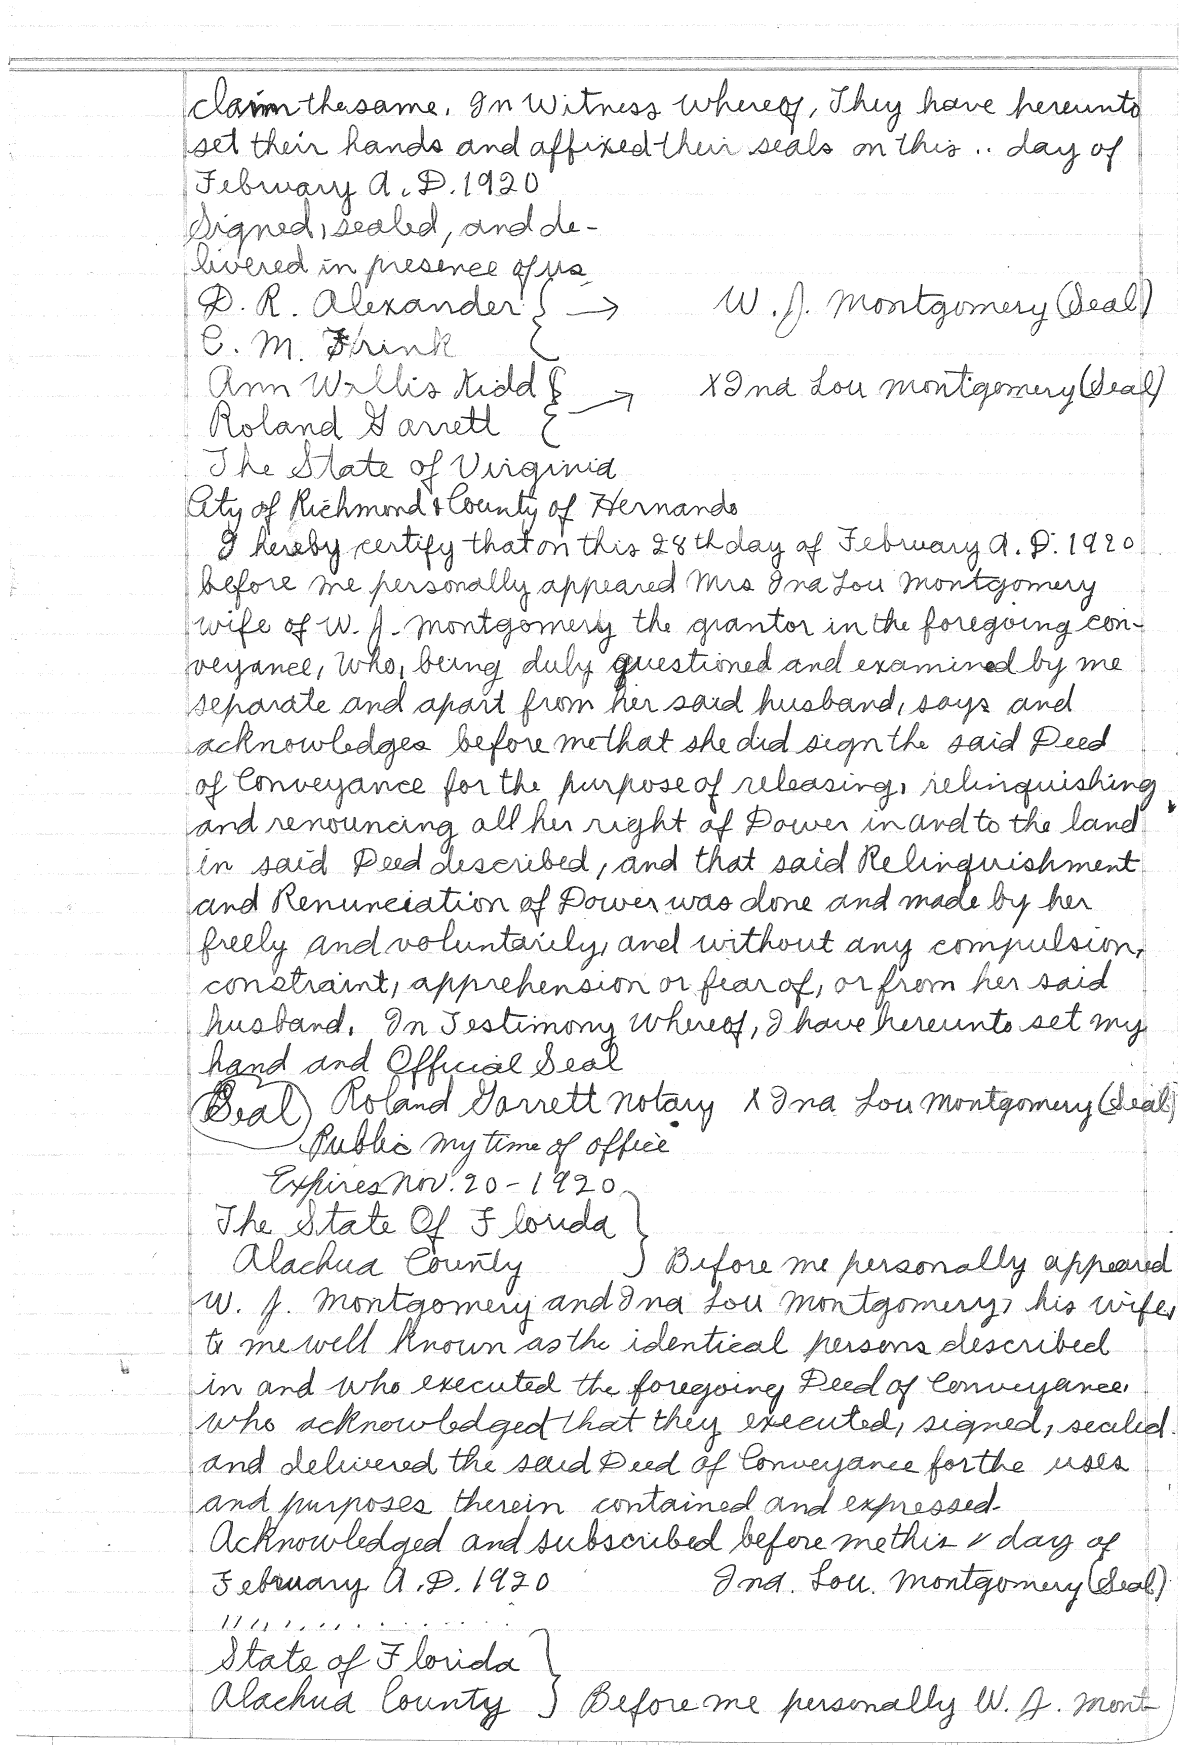 claim the same. In Witness Whereof, They have hereunto
set their hands and affixed their seals on this .. day of
February A. D. 1920
Signed, sealed, and de-
livered in presence of us
D. R. Alexander } → W. J. Montgomery (Seal)
C. M. Frink
Ann Willis Kidd } → X Ina Lou Montgomery (Seal)
Roland Garrett
The State of Virginia
City of Richmond & County of Hernando
I hereby certify that on this 28th day of February A. D. 1920
before me personally appeared Mrs Ina Lou Montgomery
wife of W. J. Montgomery the grantor in the foregoing con-
veyance, Who, being duly questioned and examined by me
separate and apart from her said husband, says and
acknowledges before me that she did sign the said Deed
of Conveyance for the purpose of releasing, relinquishing
and renouncing all her right of Dower in and to the land
in said Deed described, and that said Relinquishment
and Renunciation of Dower was done and made by her
freely and voluntarily, and without any compulsion,
constraint, apprehension or fear of, or from her said
husband. In Testimony Whereof, I have hereunto set my
hand and Official Seal
(Seal) Roland Garrett Notary X Ina Lou Montgomery (Seal)
Public My time of office
Expires Nov. 20 - 1920
The State Of Florida }
Alachua County } Before me personally appeared
W. J. Montgomery and Ina Lou Montgomery, his wife,
to me well known as the identical persons described
in and who executed the foregoing Deed of Conveyance,
who acknowledged that they executed, signed, sealed
and delivered the said Deed of Conveyance for the uses
and purposes therein contained and expressed.
Acknowledged and subscribed before me this day of
February A. D. 1920 Ina. Lou. Montgomery (Seal)
State of Florida }
Alachua County } Before me personally W. J. Mont-